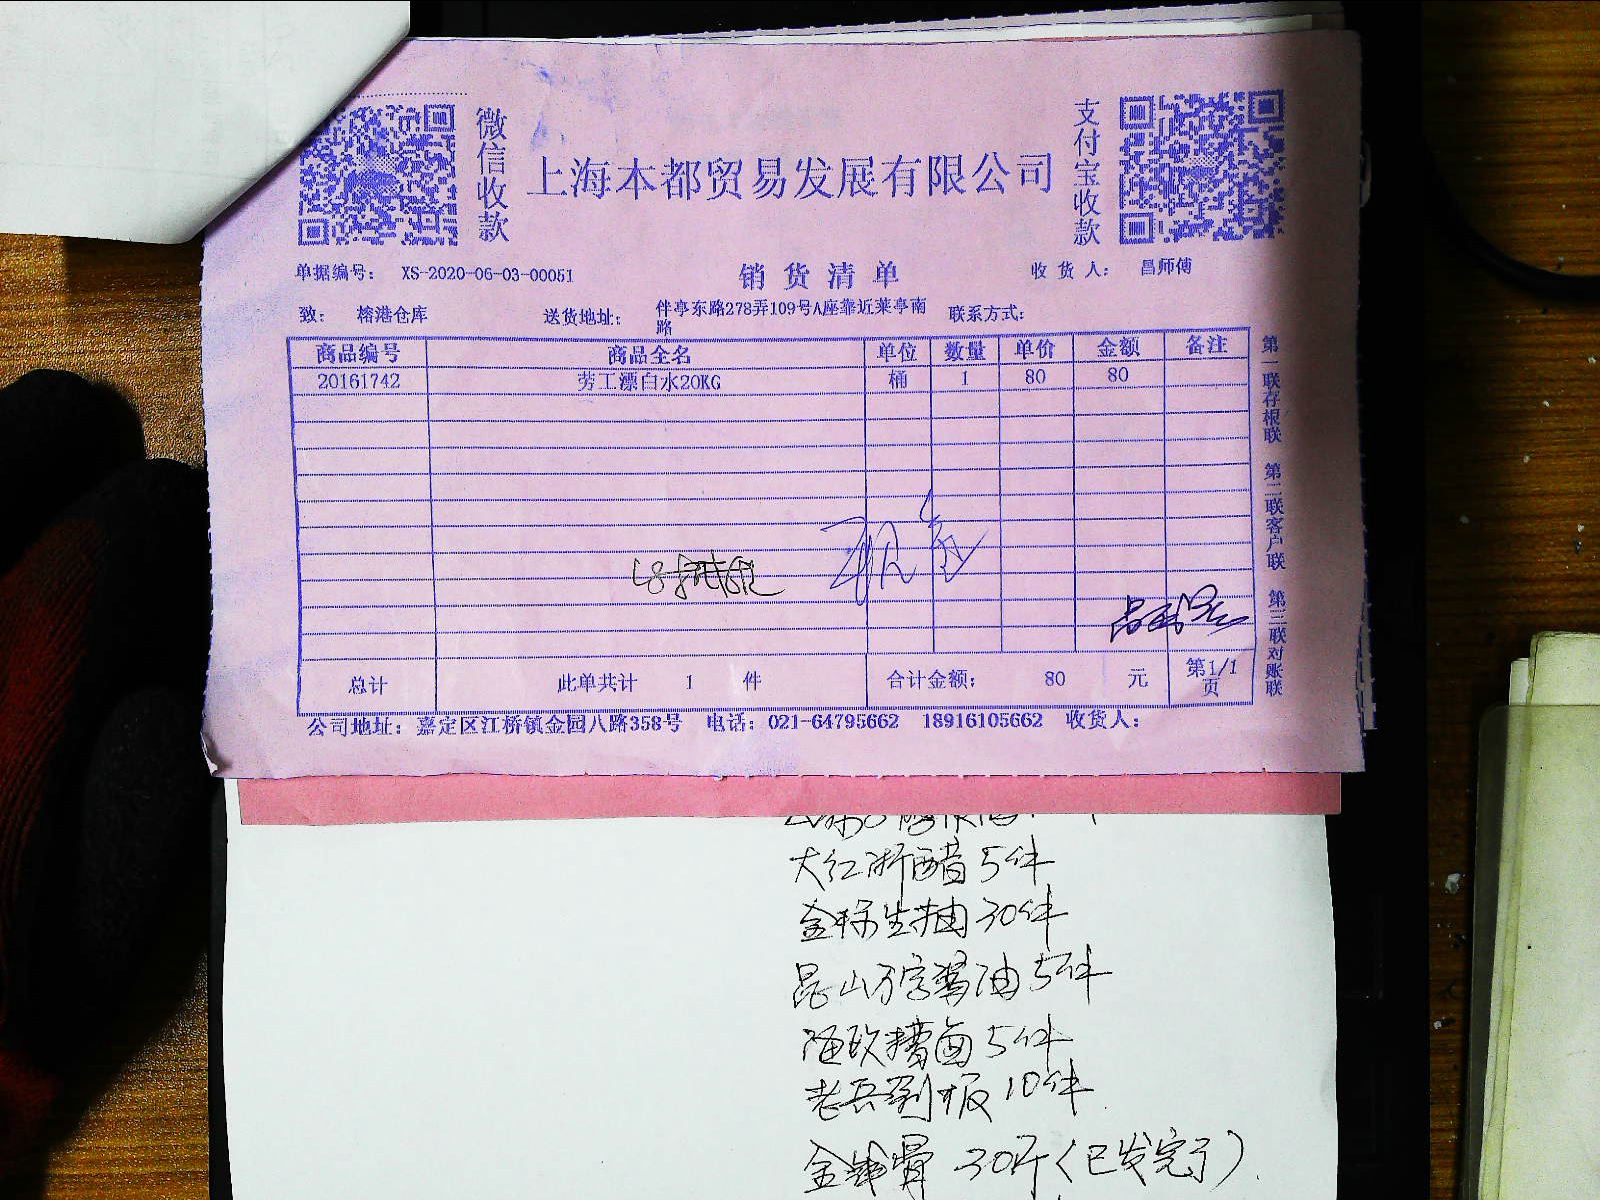 微信收款
上海本都贸易发展有限公司
支付宝收款
单据编号： XS-2020-06-03-00051
销货清单
收货人： 昌师傅
致： 榕港仓库
送货地址： 伴亭东路278弄109号A座靠近莱亭南路
联系方式：
商品编号 商品全名 单位 数量 单价 金额 备注
20161742 芳工漂白水20KG 桶 1 80 80
第一联存根联 第二联客户联 第三联对账联
总计 此单共计 1 件 合计金额： 80 元 第1/1页
公司地址：嘉定区江桥镇金园八路358号 电话：021-64795662 18916105662 收货人：
大红浙醋5件
金标生抽30件
昆山万字酱油5件
糟卤5件
老 10件
金 30斤（已发完了）